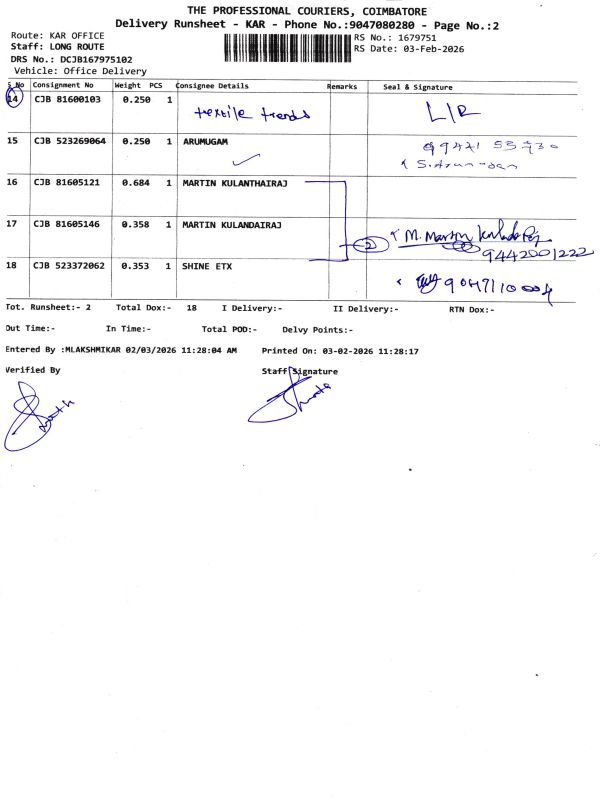 THE PROFESSIONAL COURIERS, COIMBATORE
Delivery Runsheet - KAR - Phone No.:9047080280 - Page No.:2
Route: KAR OFFICE
RS No.: 1679751
Staff: LONG ROUTE
RS Date: 03-Feb-2026
DRS No.: DCJB167975102
Vehicle: Office Delivery
S.No Consignment No Weight PCS Consignee Details Remarks Seal & Signature
14 CJB 81600103 0.250 1 textile trends L/R
15 CJB 523269064 0.250 1 ARUMUGAM
16 CJB 81605121 0.684 1 MARTIN KULANTHAIRAJ
17 CJB 81605146 0.358 1 MARTIN KULANDAIRAJ 2 M. Martin
9442001222
18 CJB 523372062 0.353 1 SHINE ETX
Tot. Runsheet:- 2 Total Dox:- 18 I Delivery:- II Delivery:- RTN Dox:-
Out Time:- In Time:- Total POD:- Delvy Points:-
Entered By :MLAKSHMIKAR 02/03/2026 11:28:04 AM Printed On: 03-02-2026 11:28:17
Verified By Staff Signature